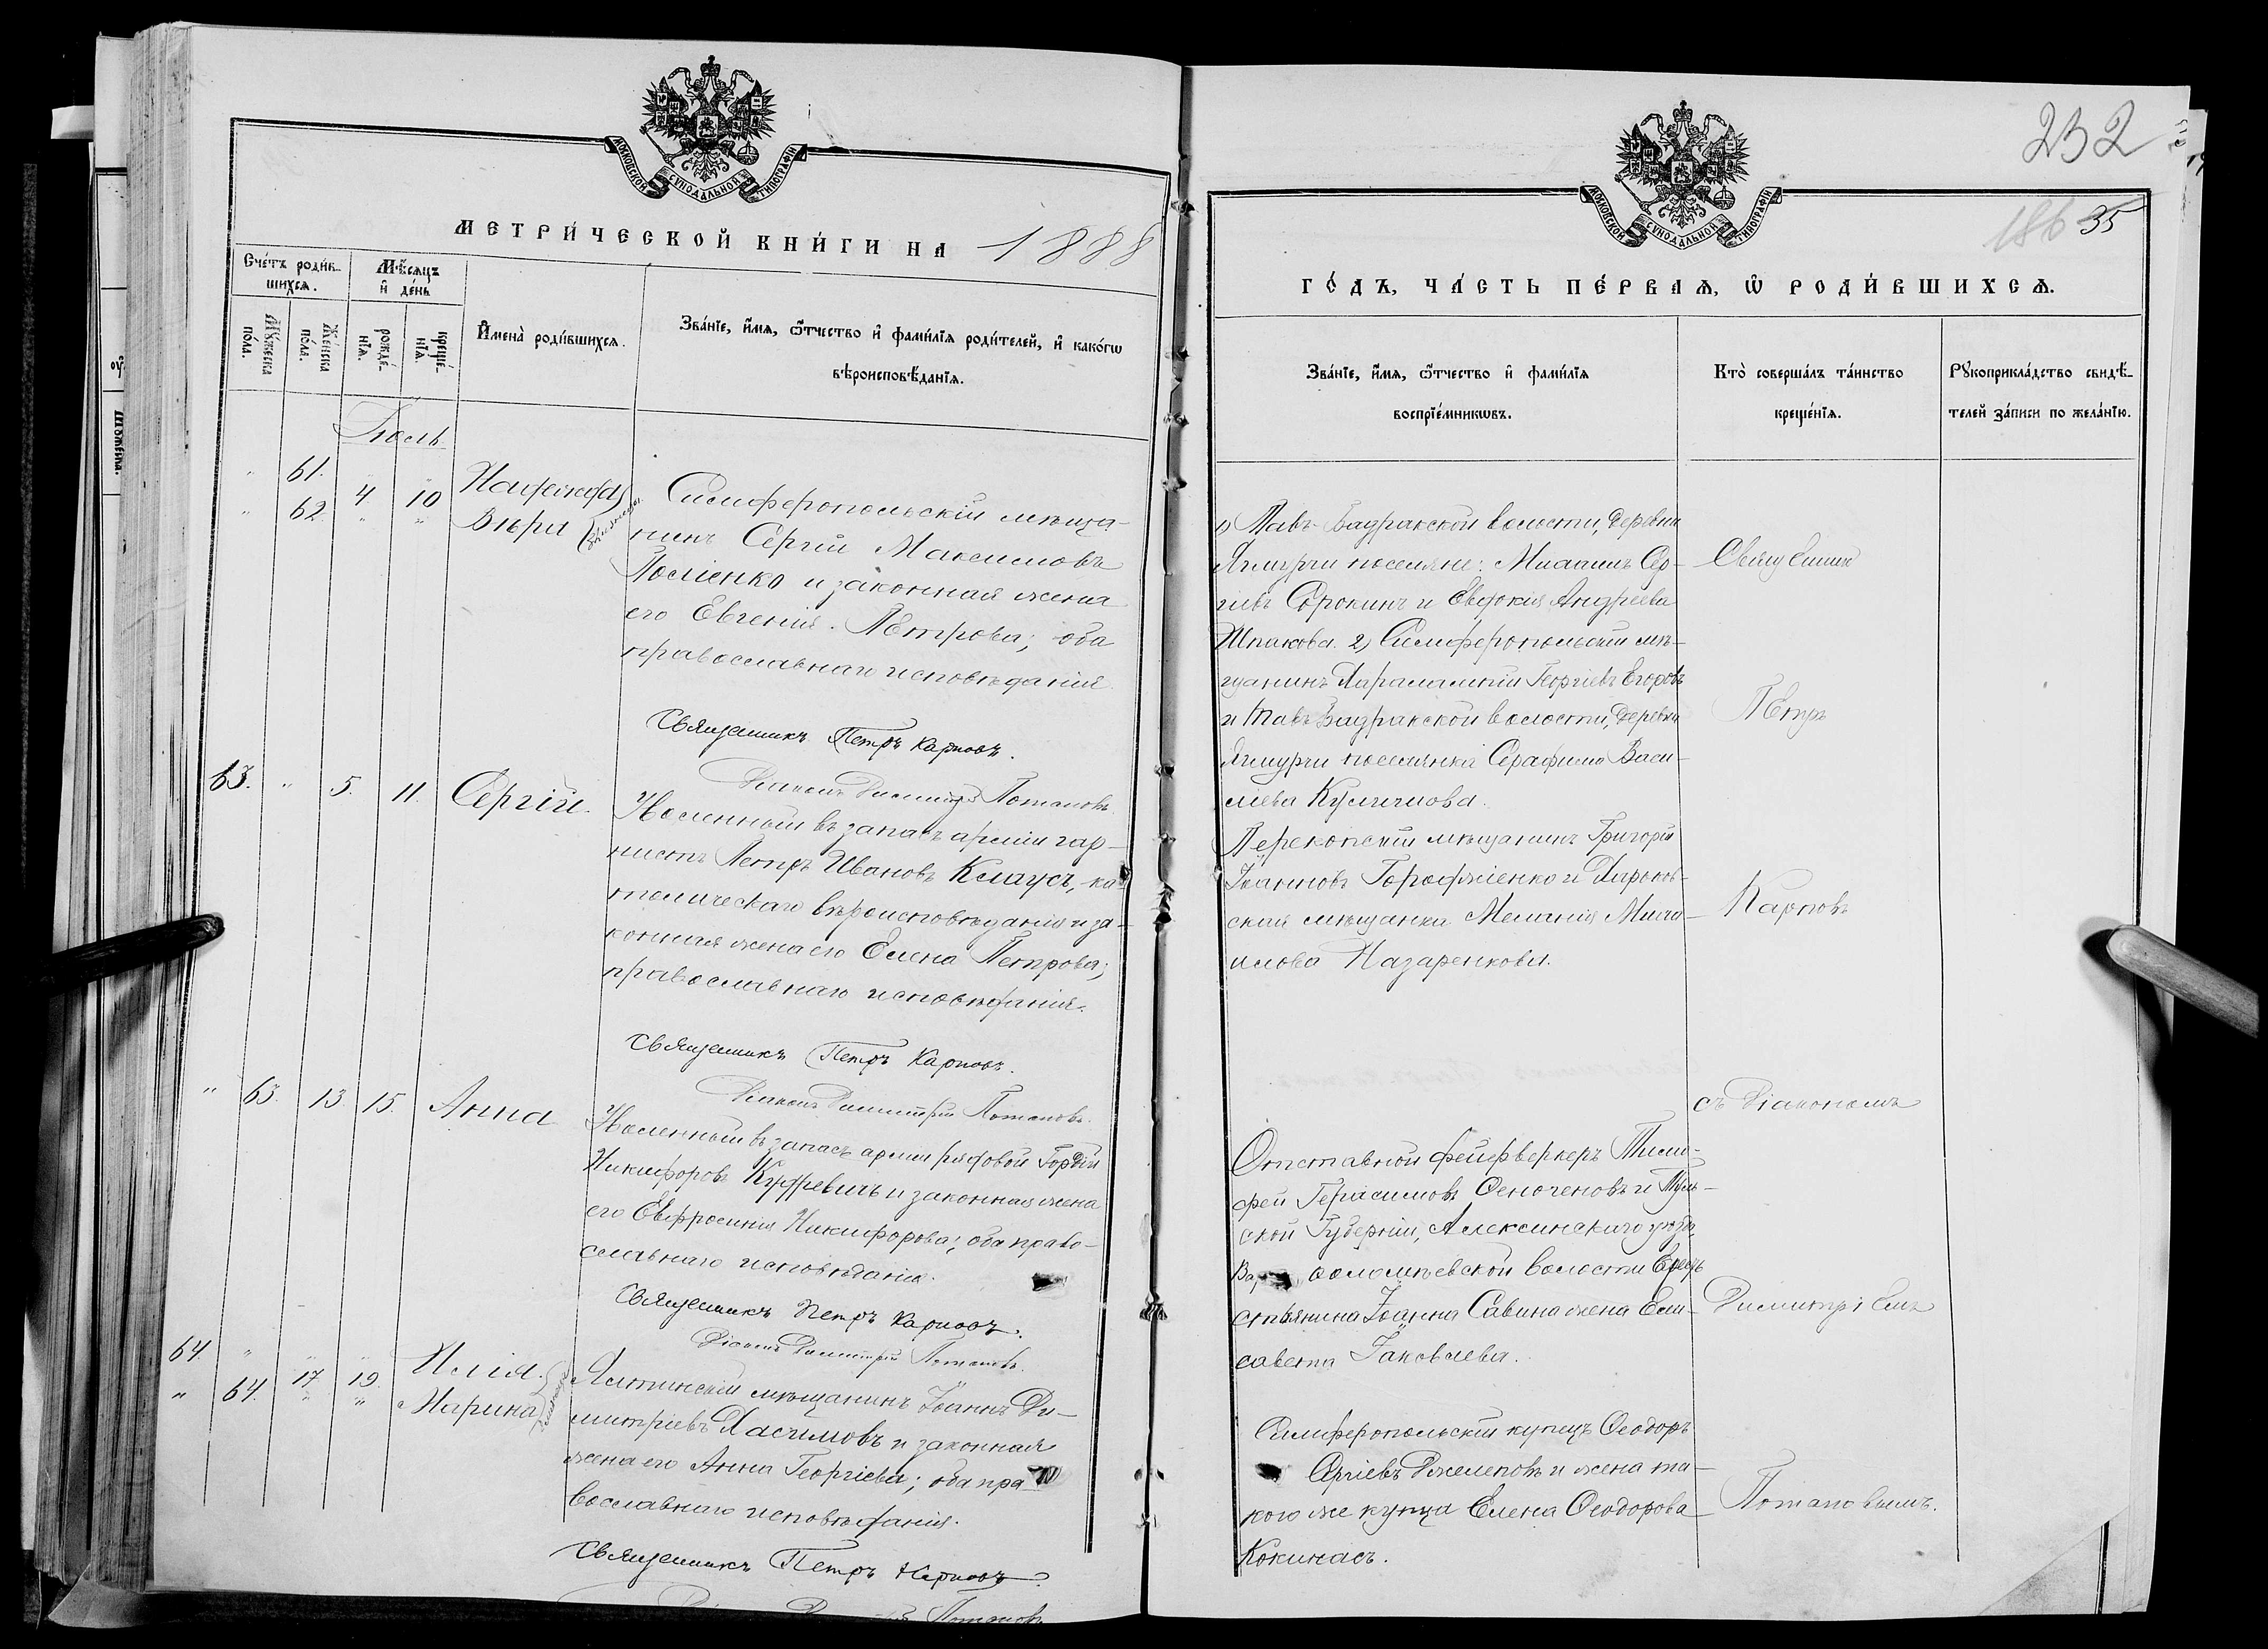 МОСКОВСКОЙ СУНОДАЛЬНОЙ ТИПОГРАФІИ
МЕТРИ́ЧЕСКОЙ КНИ́ГИ НА 1888
Сче́тъ роди́в-
шихсѧ.
Мѣ́сѧцъ
и҆ де́нь
Мꙋ́жеска
по́ла.
Же́нска
по́ла.
рожде́-
нїѧ.
креще́-
нїѧ.
И҆мена̀ роди́вшихсѧ.
Зва́нїе, и҆́мѧ, ѻ҆́тчество и҆ фами́лїѧ роди́телей, и҆ како́гѡ
вѣроисповѣ́данїѧ.
Іюль
" 61. 4 10 Наѳанаѳа
" 62. " " Вѣра
Симферопольскій мѣща-
нинъ Сергій Максимовъ
и законная жена
его Евгенія Петрова; оба
православнаго исповѣданія.
Священникъ Петръ Карповъ.
Діаконъ Димитрій Потаповъ.
63. " 5. 11. Сергій.
Уволенный въ запасъ арміи гор-
нистъ Петръ Ивановъ Клаусъ, ка-
толическаго вѣроисповѣданія и за-
конная жена его Елена Петрова;
православнаго исповѣданія.
Священникъ Петръ Карповъ.
Діаконъ Димитрій Потаповъ.
" 63. 13. 15. Анна
Уволенный въ запасъ арміи рядовой Гордій
Никифоровъ Кудревичъ и законная жена
его Евфросинія Никифорова; оба право-
славнаго исповѣданія.
Священникъ Петръ Карповъ.
Діаконъ Димитрій Потаповъ.
64. " " " Илія.
" 64. 17 19. Марина
Ялтинскій мѣщанинъ Іоаннъ Ди-
митріевъ Хасимовъ и законная
жена его Анна Георгіева; оба пра-
вославнаго исповѣданія.
Священникъ Петръ Карповъ.
Потаповъ
232
МОСКОВСКОЙ СУНОДАЛЬНОЙ ТИПОГРАФІИ
186 35
ГО́ДЪ, ЧА́СТЬ ПЕ́РВАѦ, Ѡ҆ РОДИ́ВШИХСѦ.
Зва́нїе, и҆́мѧ, ѻ҆́тчество и҆ фами́лїѧ
воспрїе́мникѡвъ.
Кто̀ соверша́лъ та́инство
креще́нїѧ.
Рꙋкоприкла́дство свидѣ́-
телей за́писи по жела́нїю.
1) Тавъ-Бадракской волости, деревни
поселяне: Михаилъ Сер-
гіевъ Сорокинъ и Евдокія Андреева
Шпакова. 2) Симферопольскій мѣ-
щанинъ Харалампій Георгіевъ Егоровъ
и Тавъ-Бадракской волости, деревни
поселянка Серафима Васи-
ліева
Священникъ
Петръ
Перекопскій мѣщанинъ Григорій
Іоанновъ и Харьков-
ская мѣщанка Меланія Миха-
илова Назаренкова.
Карповъ
съ Діакономъ
Отставной фейерверкеръ Тимо-
фей Герасимовъ и Туль-
ской Губерніи, Алексинскаго уѣзда,
Варѳоломѣевской волости Кре-
стьянина Іоанна Савина жена Ели-
савета Іаковлева.
Димитріемъ
Симферопольскій купецъ Ѳеодоръ
и жена та-
кого же купца Елена Ѳеодорова
Кокинасъ.
Потаповымъ.